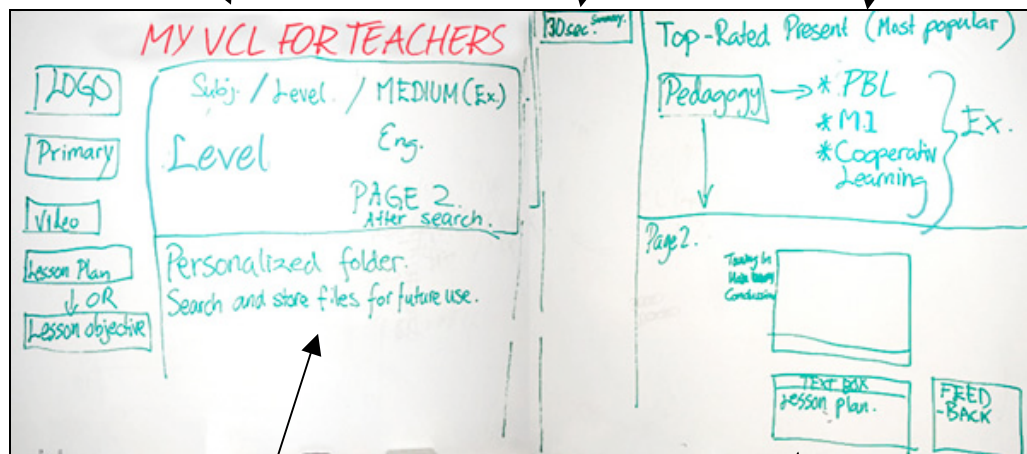 MY VCL FOR TEACHERS
LOGO
Primary
Video
Lesson Plan
↓ OR
Lesson objective
Subj. / Level / MEDIUM (Ex.)
Level
Eng.
PAGE 2.
After search.
Personalized folder.
Search and store files for future use.
30sec. Summary.
Top-Rated Present (Most popular)
Pedagogy → * PBL
* M.I
* Cooperativ
Learning
Ex.
Page 2.
In
Conclusion
TEXT BOX
Lesson plan.
FEED
-BACK